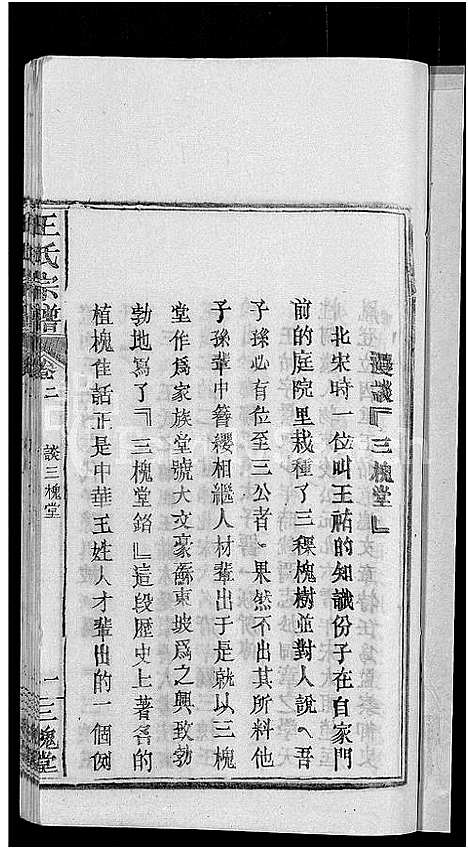 漫談『三槐堂』
北宋時一位叫王祐的知識份子在自家門
前的庭院里栽種了三稞槐樹並對人說〈吾
子孫必有位至三公者〉果然不出其所料他
子孫輩中簪纓相繼人材輩出于是就以三槐
堂作爲家族堂號大文豪蘇東坡爲之興致勃
勃地寫了『三槐堂銘』這段歷史上著名的
植槐佳話正是中華王姓人才輩出的一個例
王氏宗譜
卷二
談三槐堂
一
三槐堂